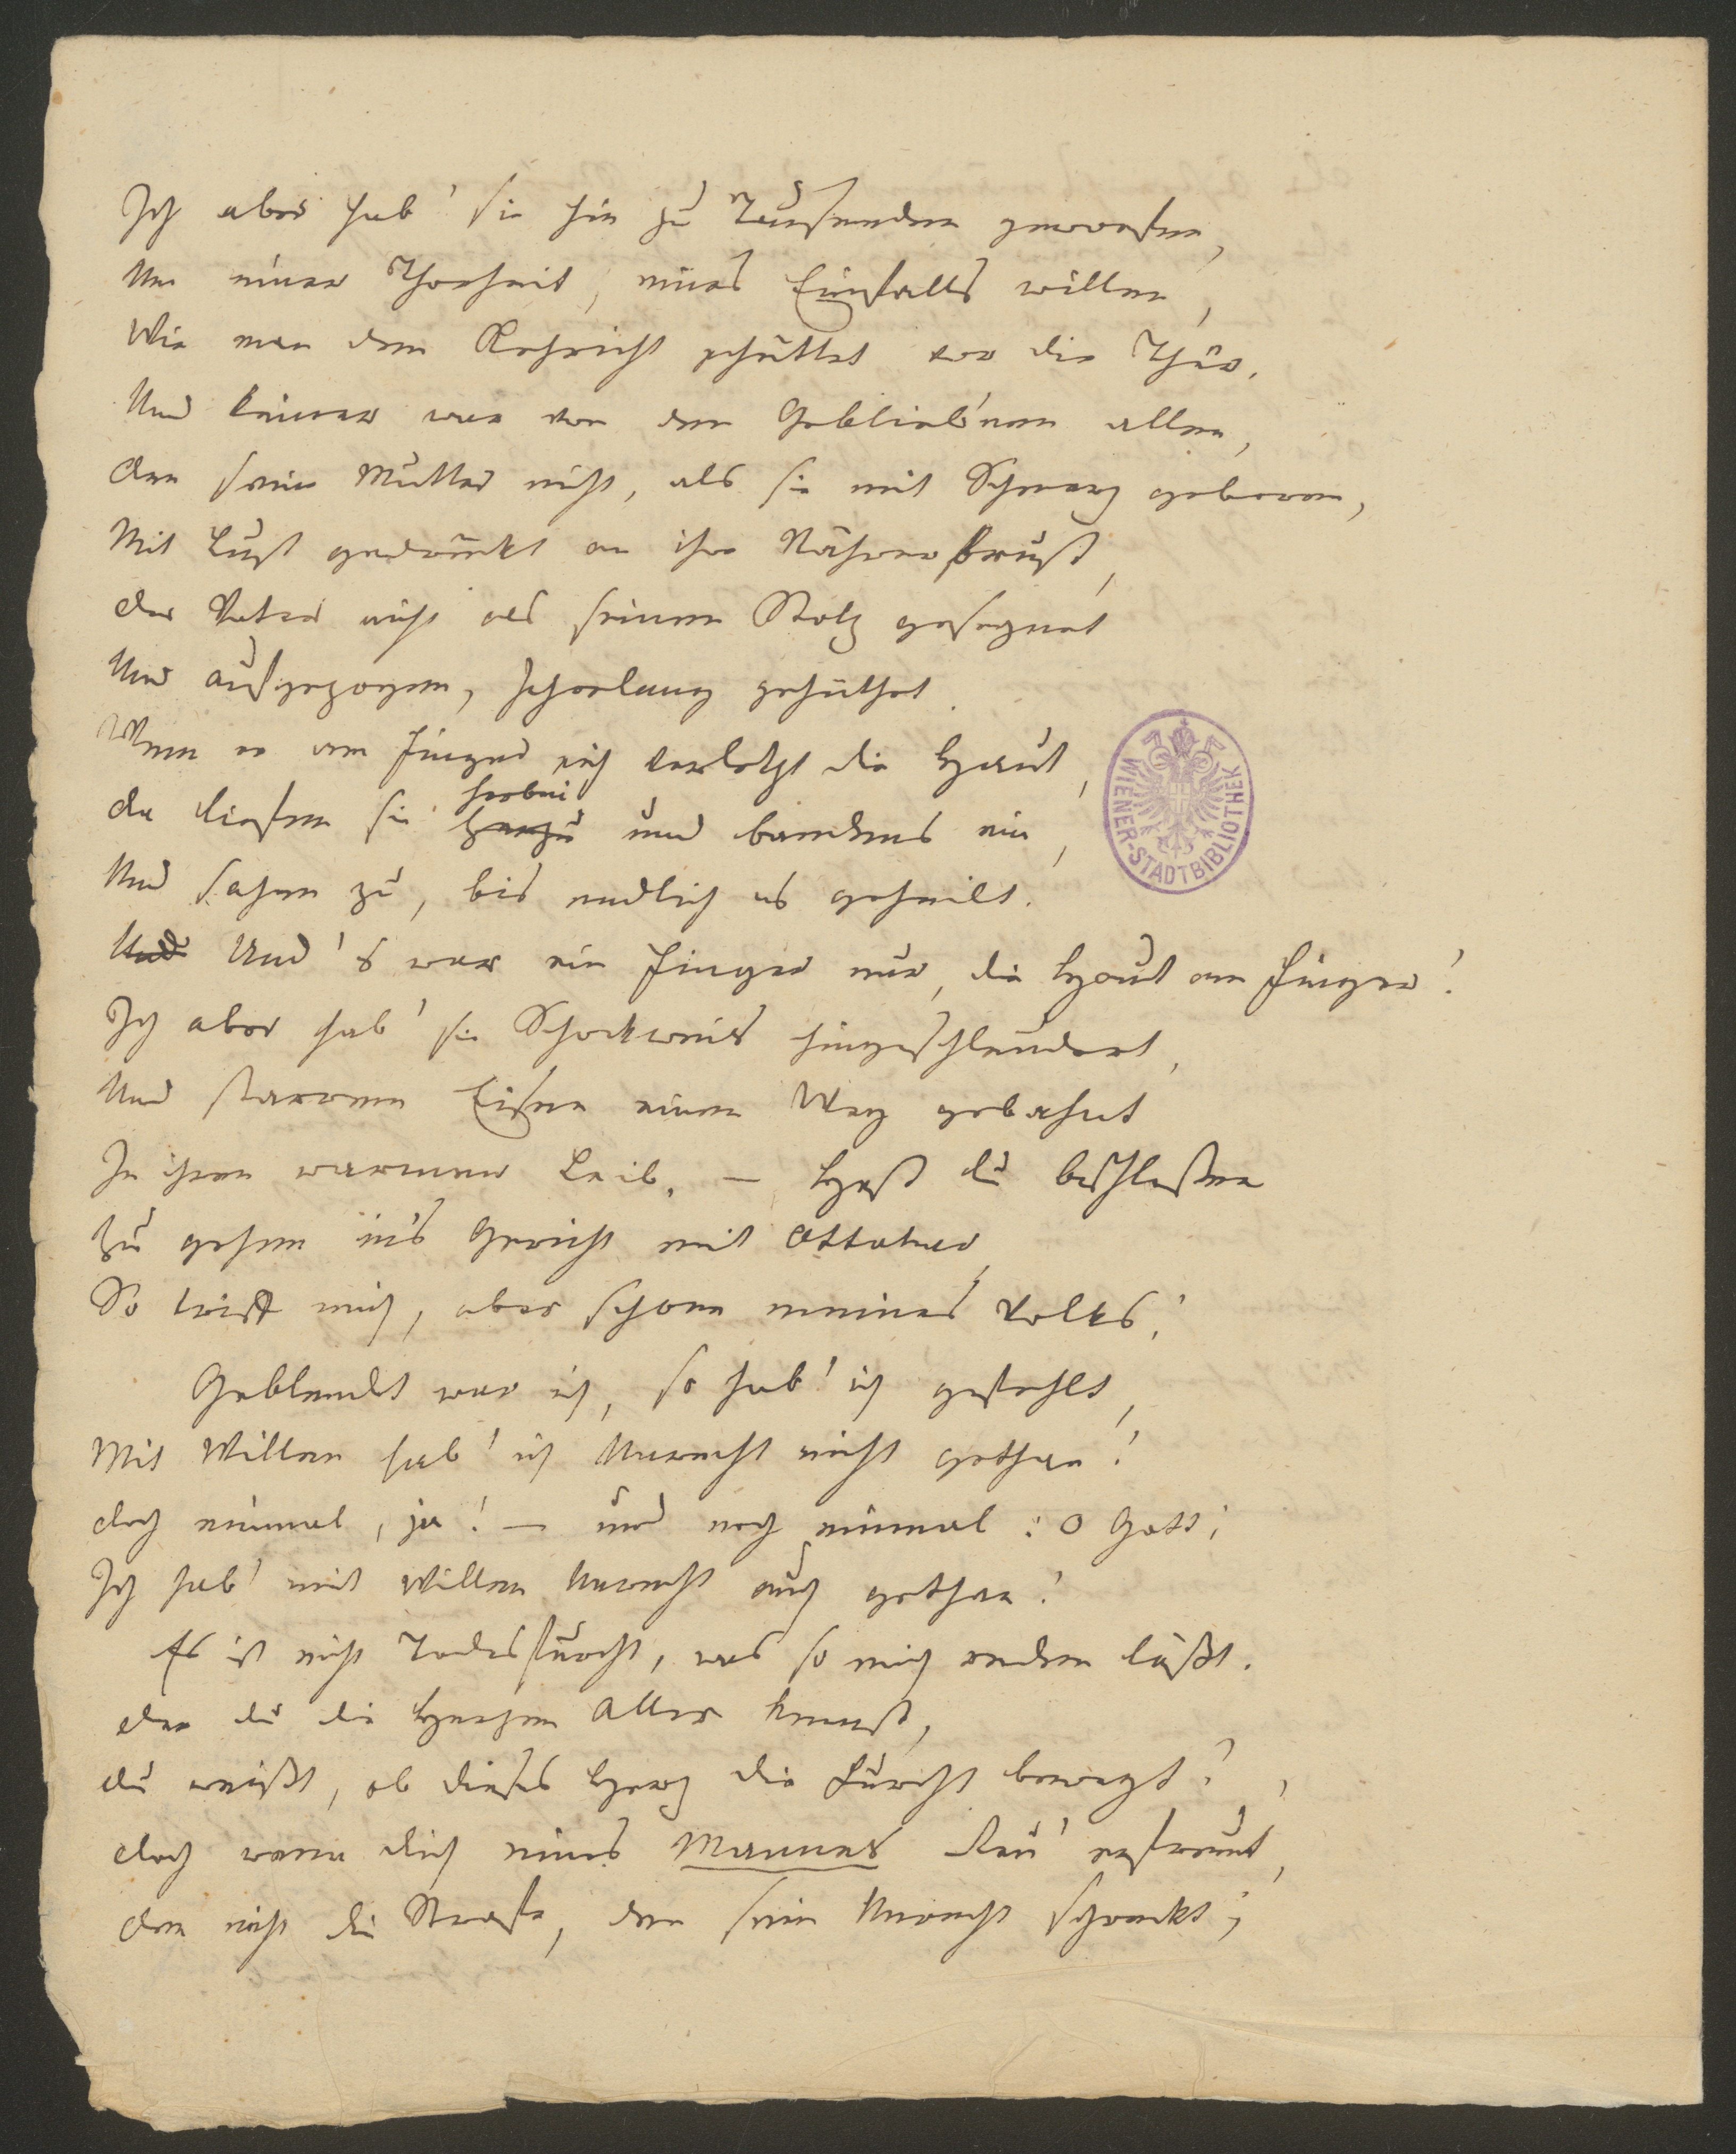 Ich aber hab' sie hin zu Tausenden geworfen,
Um einer Thorheit, eines Einfalls willen,
Wie man den Kehricht schüttet vor die Thür.
Und keiner war von den Geblieb'nen allen,
Den seine Mutter nicht, als sie mit Schmerz geboren,
Mit Lust gedrückt an ihre Nährerbrust,
Der Vater nicht als seinen Stolz gesegnet
Und aufgezogen, Jahrelang gehüthet.
Wenn er am Finger sich verletzt die Haut,
herbei
Da liefen sie herzu und bandens ein,
Und sahen zu, bis endlich es geheilt.
Und Und's war ein Finger nur, die Haut am Finger!
Ich aber hab' sie Schockweis hingeschleudert,
Und starrem Eisen einen Weg gebahnt
In ihren warmen Leib. – Hast du beschlossen
Zu gehen in's Gericht mit Ottokar,
So triff mich, aber schone meines Volks!
Geblendet war ich, so hab' ich gefehlt,
Mit Willen hab' ich Unrecht nicht gethan!
Doch einmal, ja! – und noch einmal: O Gott!
Ich hab' mit Willen Unrecht auch gethan!
Es ist nicht Todesfurcht, was so mich reden läßt.
Der du die Herzen Aller kennst,
Du weißt, ob dieses Herz die Furcht bewegt?
Doch wenn dich eines Mannes Reu' erfreut,
Den nicht die Strafe, den sein Unrecht schreckt;
WIENER-STADTBIBLIOTHEK